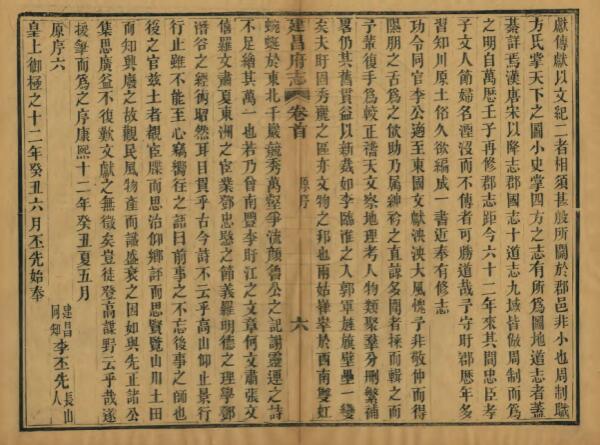 獻傳獻以文紀二者相須甚殷所關於郡邑非小也周制職
方氏掌天下之圖小史掌四方之志有所爲圖地道志者蓋
綦詳焉漢唐宋以降志郡國志十道志九域皆倣周制而爲
之明自萬歷壬子再修郡志距今六十二年來其間忠臣孝
子文人節婦名湮沒而不傳者可勝道哉予守盱郡歷年多
習知川原土俗久欲編成一書近奉有修志
功令同官李公適至東國文獻泱泱大風愧予非敬仲而得
隰朋之舌爲之佽助乃属紳衿之直諒多聞者採而輯之而
子輩復手爲較正禱天文察地理考人物類聚羣分刪繁補
畧仍其舊貫益以新裁如李臨淮之入郭軍旌旗壁壘一變
矣大盱固秀麗之區亦文物之邦也兩姑崒峷於西南雙虹
建昌府志 卷首 原序 六
蜿蜒於東北千巖競秀萬壑爭流顔魯公之記謝靈運之詩
不足繪其萬一也若乃曾南豐李盱江之文章何文肅張文
僖羅文肅夏東洲之宦業鄧忠愍之節義羅明德之理學鄧
潛谷之經術昭然耳目買乎古今詩不云乎高山仰止景行
行止雖不能至心竊嚮往之語曰前事之不忘後事之師也
後之官兹土者覩宦牒而思治仰鄉評而思賢覽山川土田
而知興廢之故觀民風物產而識盛衰之因如與先正諸公
集思廣益不復歎文獻之無徵矣豈徒登高謀野云乎哉遂
援筆而爲之序康熙十二年癸丑夏五月
建昌同知李丕先長山人
原序六
皇上御極之十二年癸丑六月丕先始奉